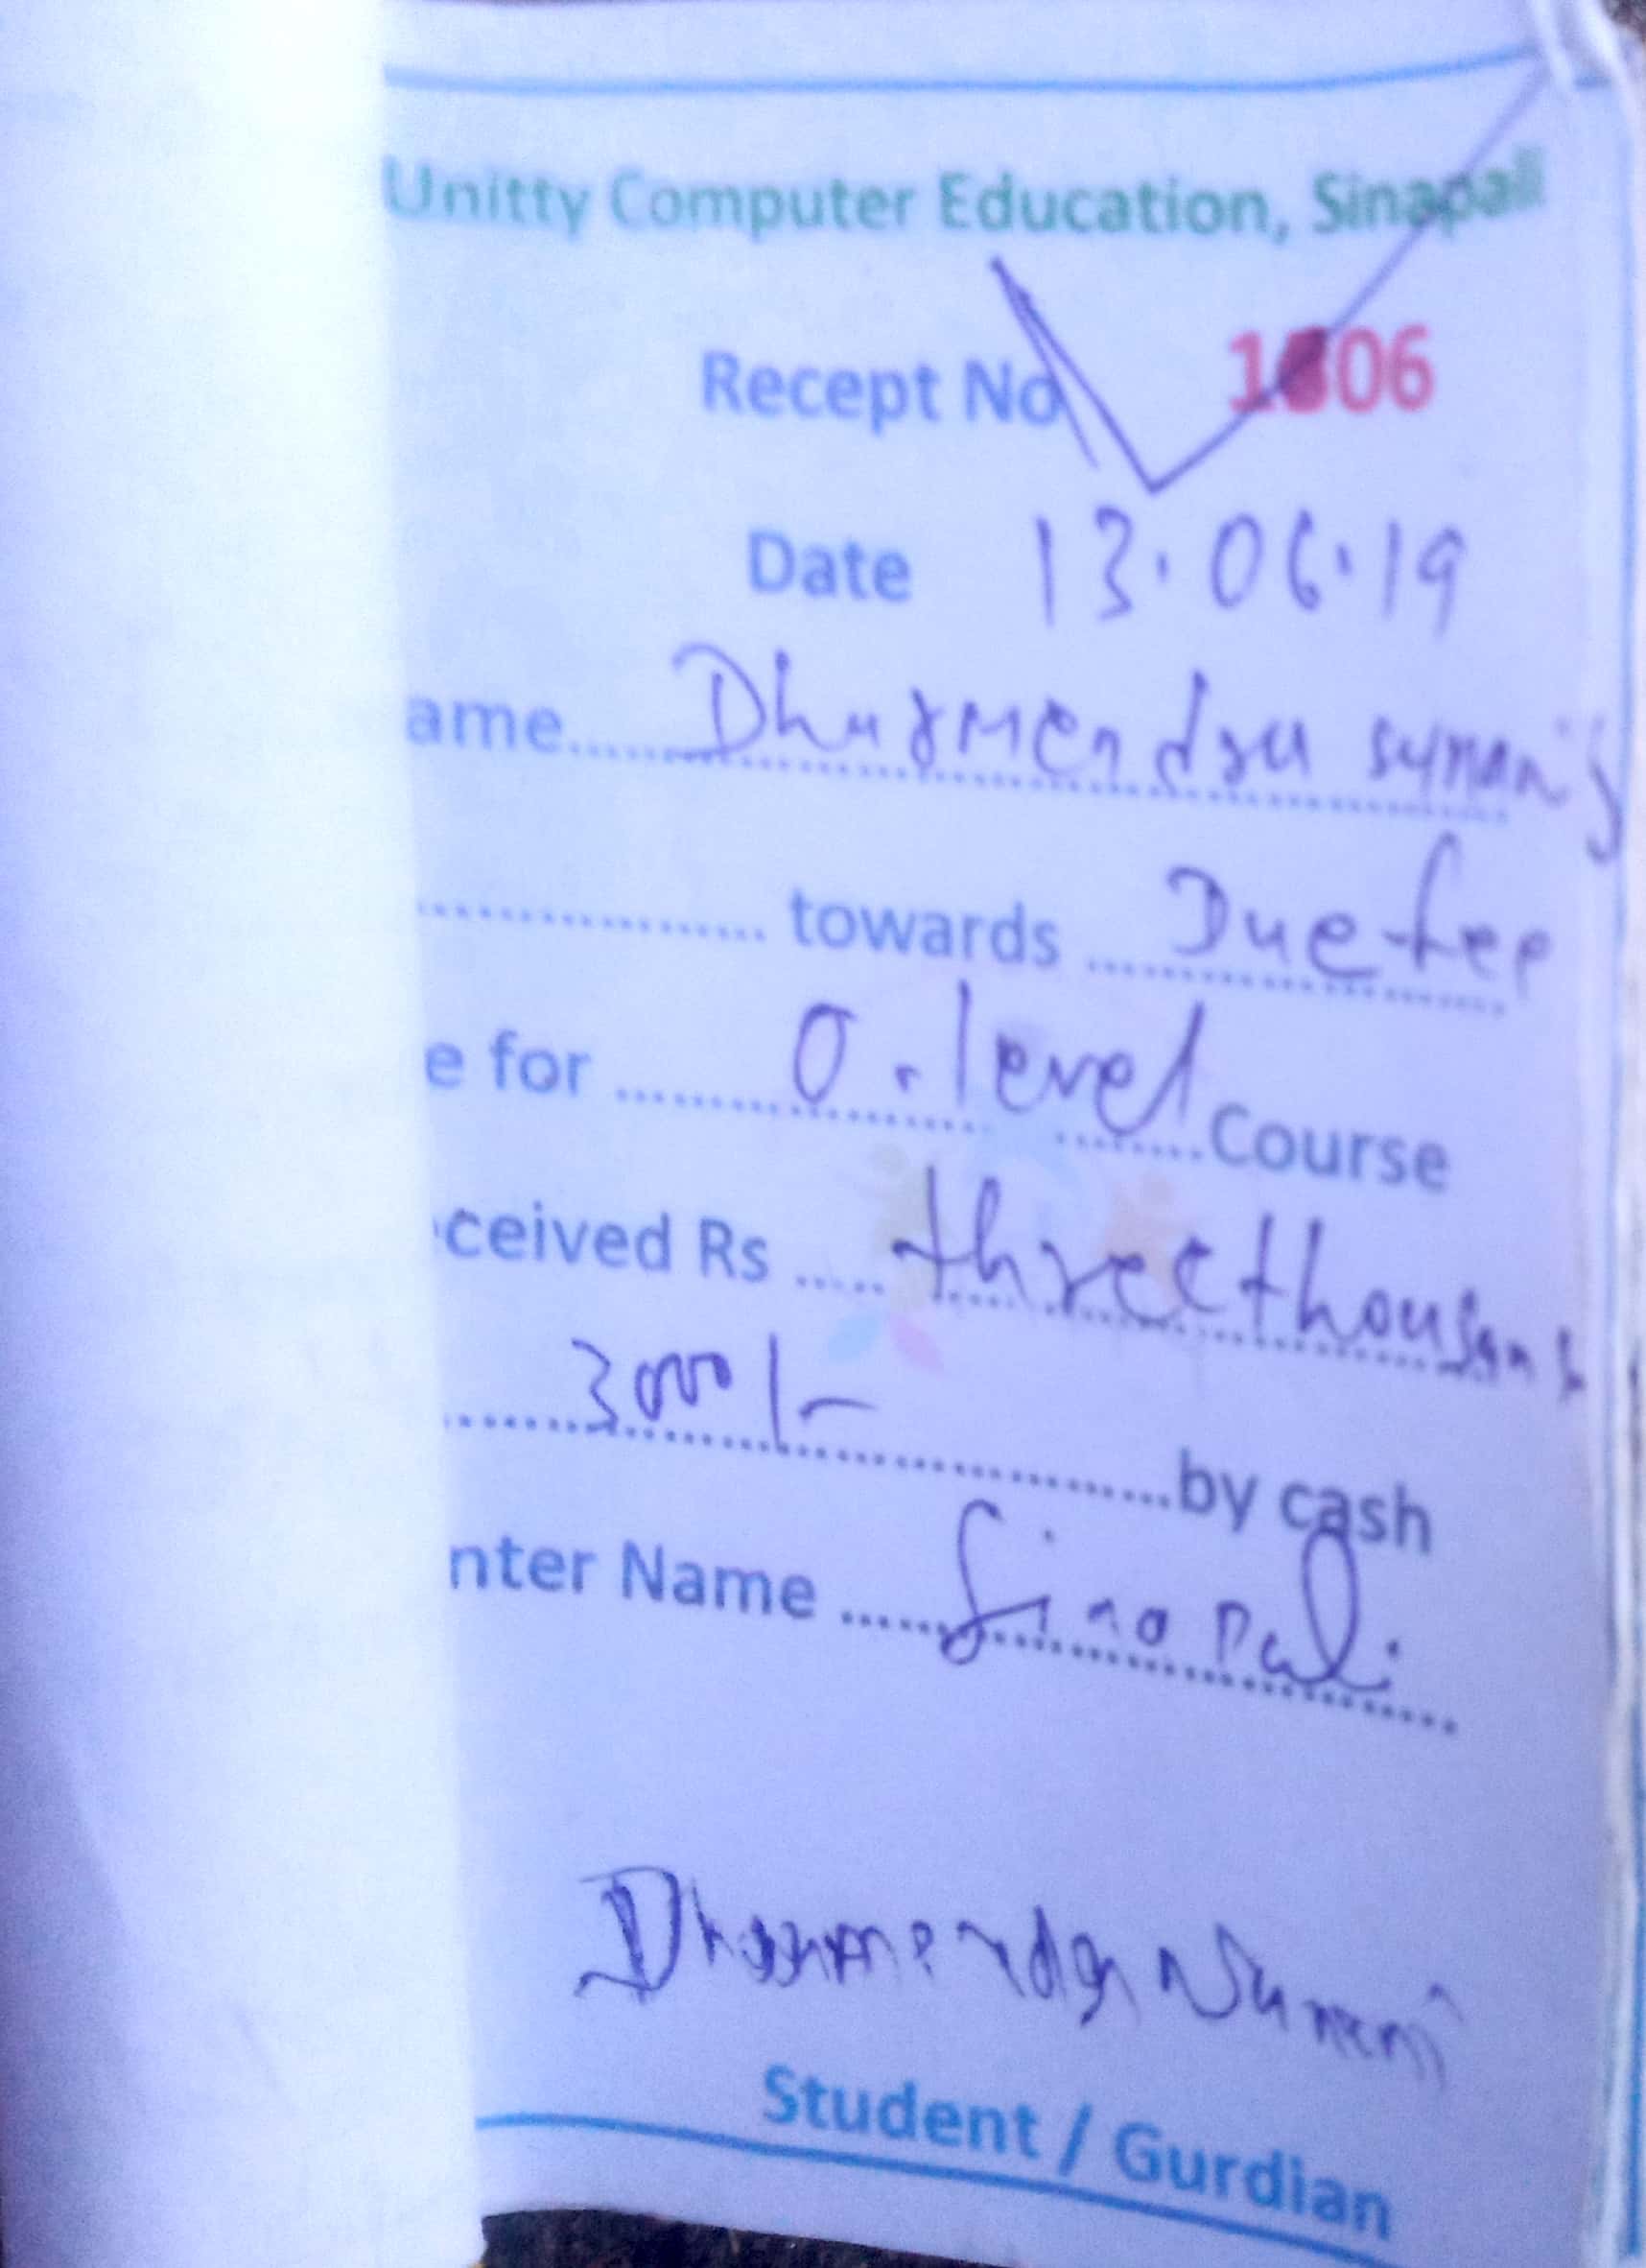 Unitty Computer Education, Sinapali
Recept No 1806
Date 13.06.19
ame...... Dharmendra
.................. towards ... Due fee
e for ...... O.level ...... Course
ceived Rs ..... three thousand
3000/- ......by cash
nter Name ...... Sinapali
Dharmendra
Student / Gurdian